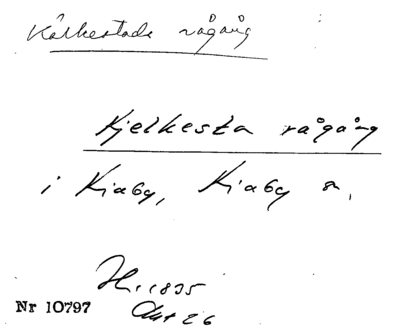 Kälkestads rågång
Kjelkesta rågång
i Kiaby, Kiaby s.
H. 1835
Akt 26
Nr 10797